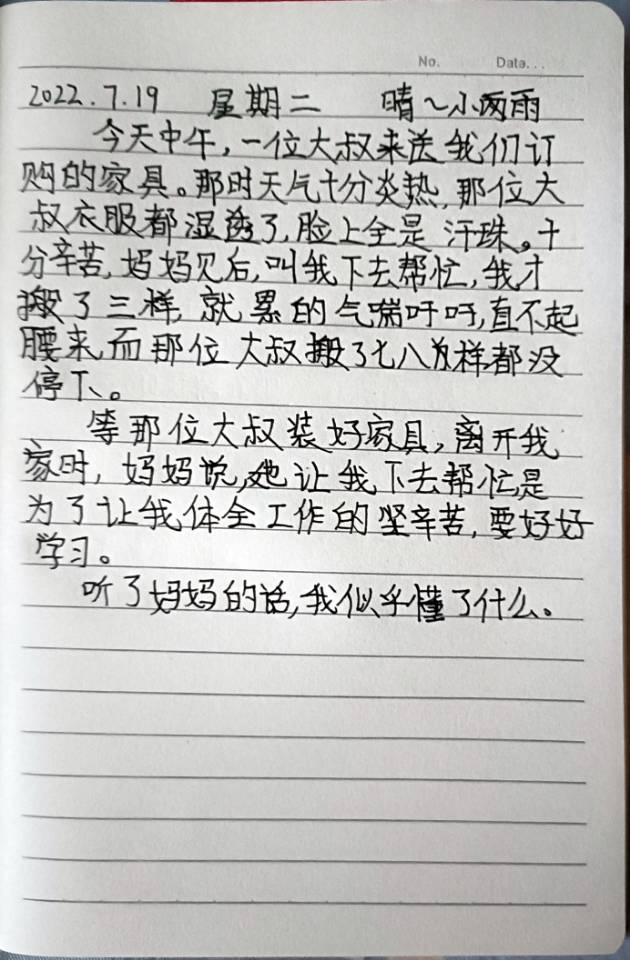 No. Date...
2022.7.19 星期二 晴~小雨
今天中午,一位大叔来送我们订
购的家具。那时天气十分炎热,那位大
叔衣服都湿透了,脸上全是汗珠。十
分辛苦,妈妈见后,叫我下去帮忙,我才
搬了三样,就累的气喘吁吁,直不起
腰来,而那位大叔搬了七八样都没
停下。
等那位大叔装好家具,离开我
家时,妈妈说,她让我下去帮忙是
为了让我体会工作的坚辛苦,要好好
学习。
听了妈妈的话,我似乎懂了什么。